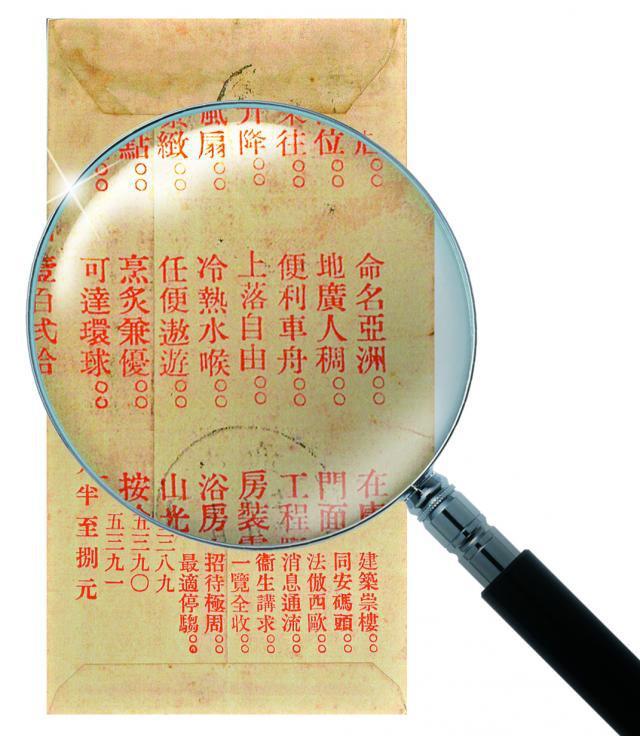 位○○
往○○
升降○○
風扇○○
緻○○
點○○
命名亞洲○○
地廣人稠○○
便利車舟○○
上落自由○○
冷熱水喉○○
任便遨遊○○
烹炙兼優○○
可達環球○○
壹百弍拾
在
門面
工程
房裝
浴房
山光
按
建築崇樓○○
同安碼頭○○
法倣西歐○○
消息通流○○
衞生講求○○
一覽全收○○
招待極周○○
最適停騶○○
三八九
五三九〇
五三九一
半至捌元